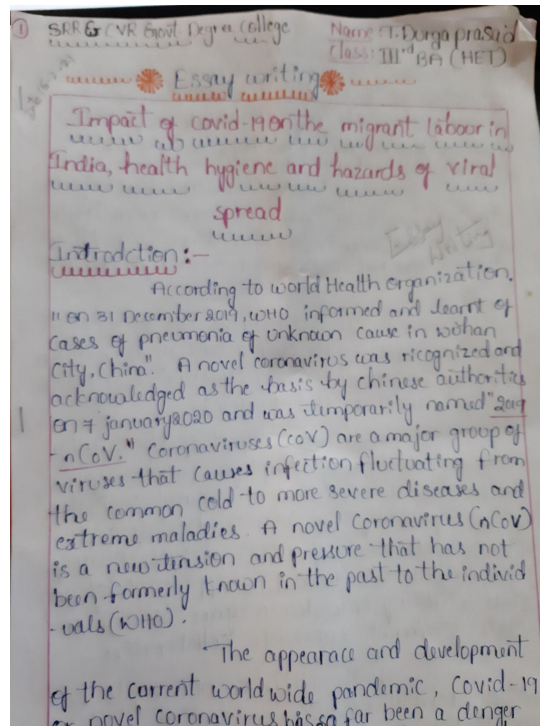 1 SRR & CVR Govt Degree College
Name: T. Durga prasad
Class: IIIrd BA (HET)
Essay writing
Impact of covid-19 on the migrant labour in
India, health hygiene and hazards of viral
spread
Essay
Writing
Introdction:-
According to world Health organization.
"on 31 December 2019, WHO informed and learnt of
cases of pneumonia of unknown cause in wohan
City, China". A novel coronavirus was ricognized and
acknowledged as the basis by chinese authorities
on 7 january2020 and was temporarily named "2019
-nCoV." Coronaviruses (coV) are a major group of
viruses that causes infection fluctuating from
the common cold to more severe diseases and
extreme maladies. A novel Coronavirus (nCoV)
is a new tension and pressure that has not
been formerly known in the past to the individ
-uals (WHO).
The appearace and development
of the current world wide pandemic, Covid-19
or novel coronavirus has so far been a denger